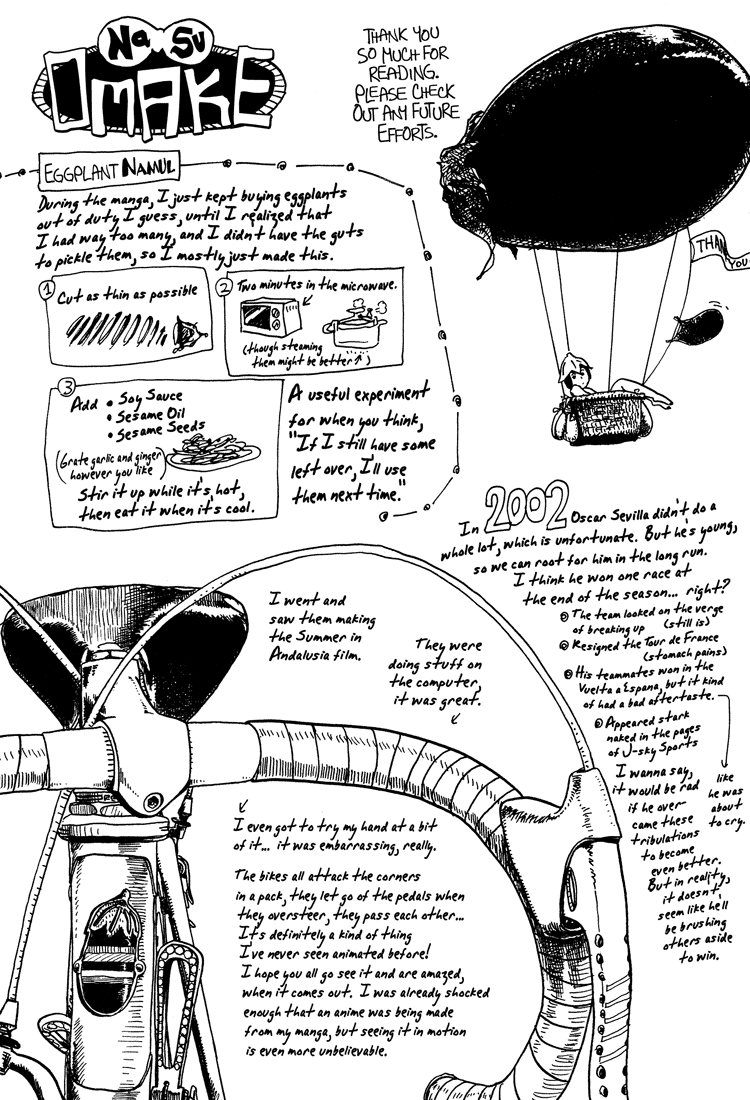 Na Su
OMAKE
THANK YOU
SO MUCH FOR
READING.
PLEASE CHECK
OUT ANY FUTURE
EFFORTS.
THANK
YOU
EGGPLANT NAMUL
During the manga, I just kept buying eggplants
out of duty I guess, until I realized that
I had way too many, and I didn't have the guts
to pickle them, so I mostly just made this.
1 Cut as thin as possible
2 Two minutes in the microwave.
(though steaming
them might be better↑)
3
Add • Soy Sauce
• Sesame Oil
• Sesame Seeds
(Grate garlic and ginger
however you like)
Stir it up while it's hot,
then eat it when it's cool.
A useful experiment
for when you think,
"If I still have some
left over, I'll use
them next time."
In 2002 Oscar Sevilla didn't do a
whole lot, which is unfortunate. But he's young,
so we can root for him in the long run.
I think he won one race at
the end of the season... right?
The team looked on the verge
of breaking up (still is)
Resigned the Tour de France
(stomach pains)
His teammates won in the
Vuelta a Espana, but it kind
of had a bad aftertaste.
Appeared stark
naked in the pages
of J-sky Sports
like
he was
about
to cry.
I wanna say,
it would be rad
if he over-
came these
tribulations
to become
even better.
But in reality,
it doesn't
seem like he'll
be brushing
others aside
to win.
I went and
saw them making
the Summer in
Andalusia film.
They were
doing stuff on
the computer,
it was great.
I even got to try my hand at a bit
of it... it was embarrassing, really.
The bikes all attack the corners
in a pack, they let go of the pedals when
they oversteer, they pass each other...
It's definitely a kind of thing
I've never seen animated before!
I hope you all go see it and are amazed,
when it comes out. I was already shocked
enough that an anime was being made
from my manga, but seeing it in motion
is even more unbelievable.